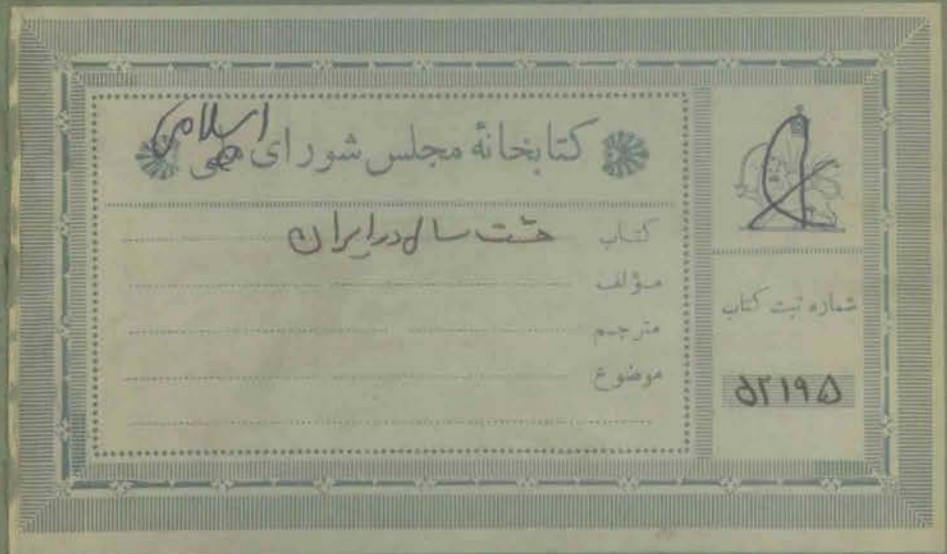 کتابخانهٔ مجلس شورای اسلامی
کتاب هشت سال در ایران
مؤلف
مترجم
موضوع
شماره ثبت کتاب
۵۲۱۹۵